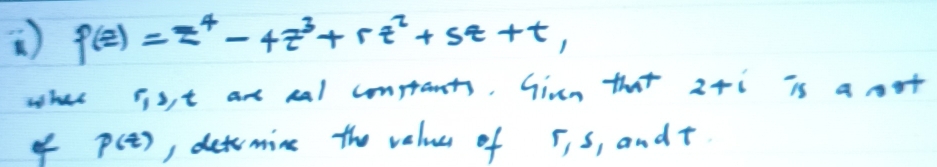 ii) p(z) = z⁴ - 4z³ + rz² + sz + t,
where r,s,t are real constants. Given that 2+i is a root
of p(z), determine the values of r, s, and t.